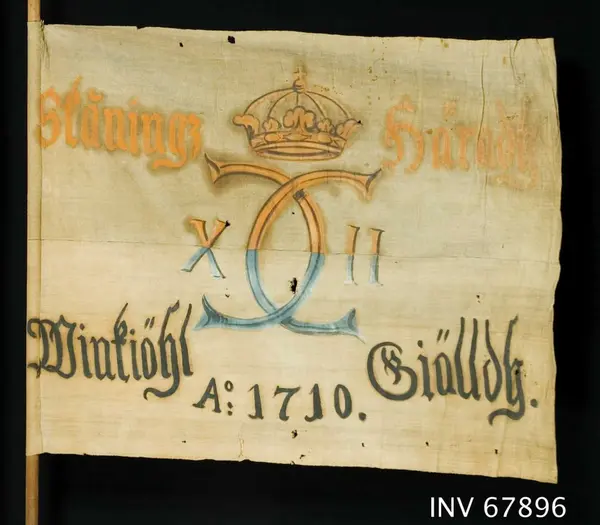 Skånings Häradh
X CC II
Winkiöhl Giälldh.
Ao: 1710.
INV 67896